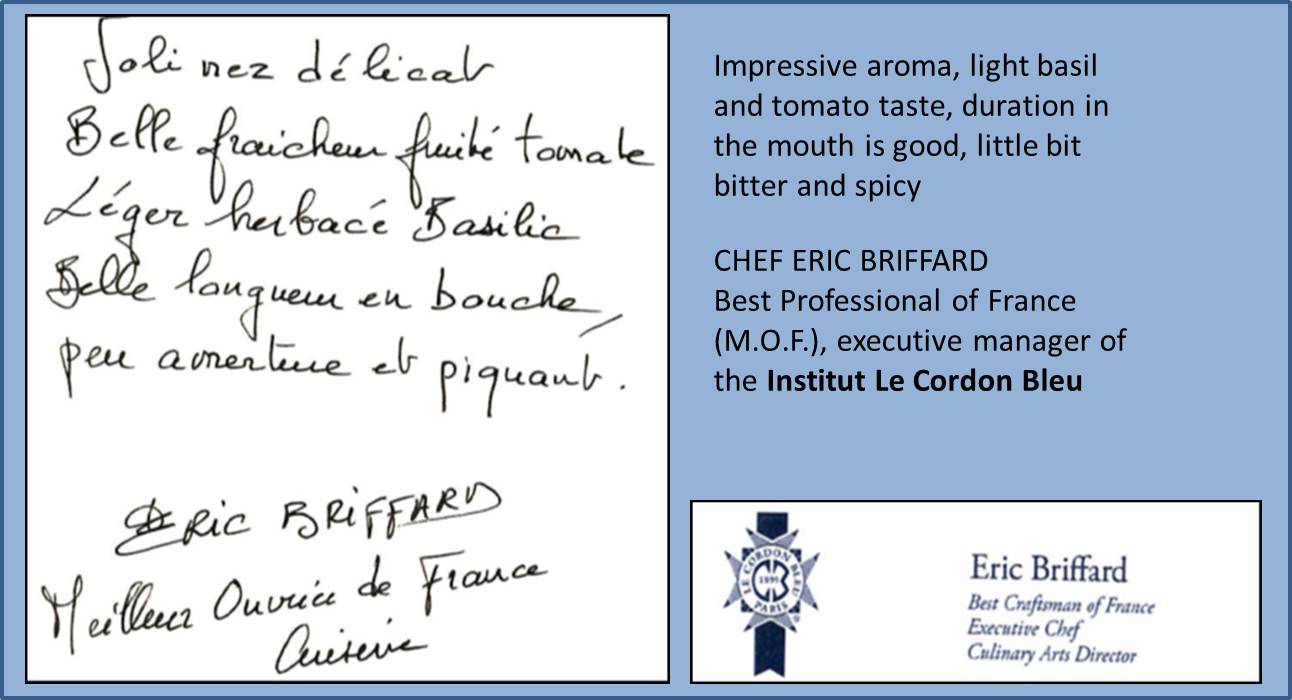 Joli nez délicat
Belle fraicheur fruité tomate
Léger herbacé Basilic
Belle longueur en bouche,
peu amertume et piquant.
ERIC BRIFFARD
Meilleur Ouvrier de France
Cuisine
Impressive aroma, light basil
and tomato taste, duration in
the mouth is good, little bit
bitter and spicy
CHEF ERIC BRIFFARD
Best Professional of France
(M.O.F.), executive manager of
the Institut Le Cordon Bleu
LE CORDON BLEU
1895
PARIS
®
Eric Briffard
Best Craftsman of France
Executive Chef
Culinary Arts Director